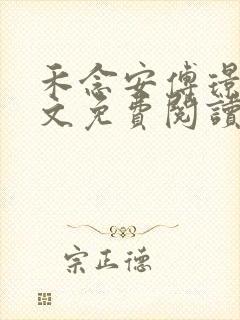 禾念安傅璟
文免費閱讀
宗正德